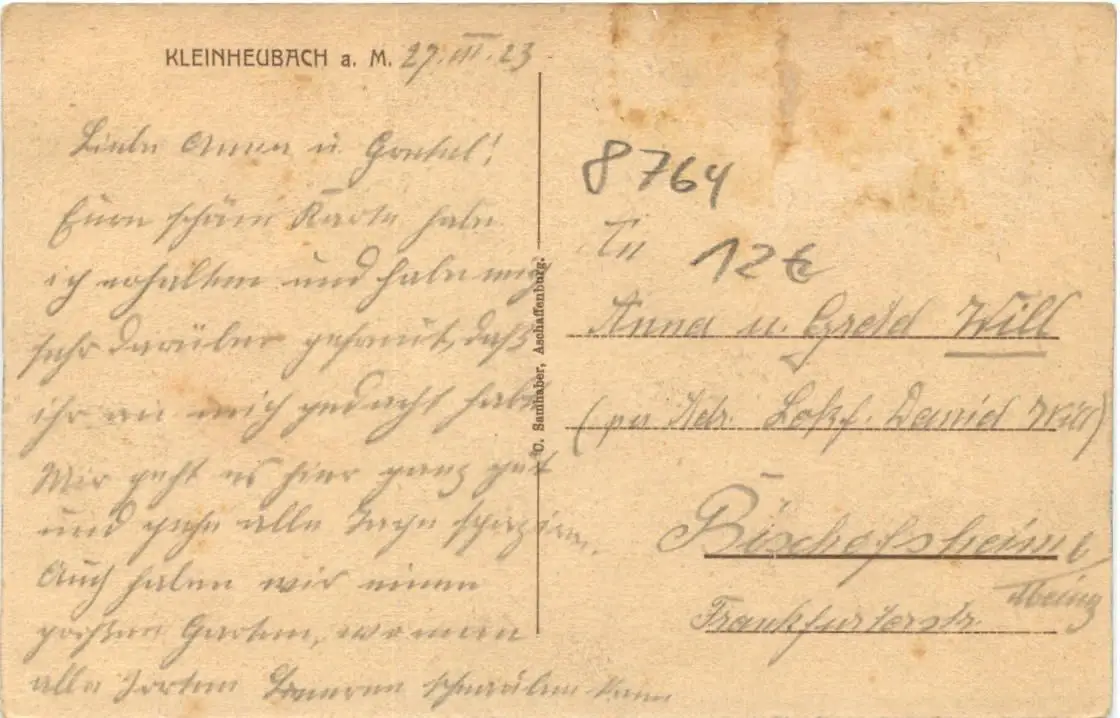 KLEINHEUBACH a. M. 27. III. 23
Liebe Anna u Gretel!
Eure schöne Karte habe
ich erhalten und habe mich
sehr darüber gefreut, daß
ihr an mich gedacht habt.
Mir geht es hier ganz gut
und gehe alle Tage spazieren.
Auch haben wir einen
großen Garten, wo man
alle Sorten Beeren schnabulieren kann
O. Samhaber, Aschaffenburg.
8764
An
12€
Anna u. Gretel Will
(per Adr. Lokf. Daniel Will)
Bischofsheim b/
Mainz
Frankfurterstr.